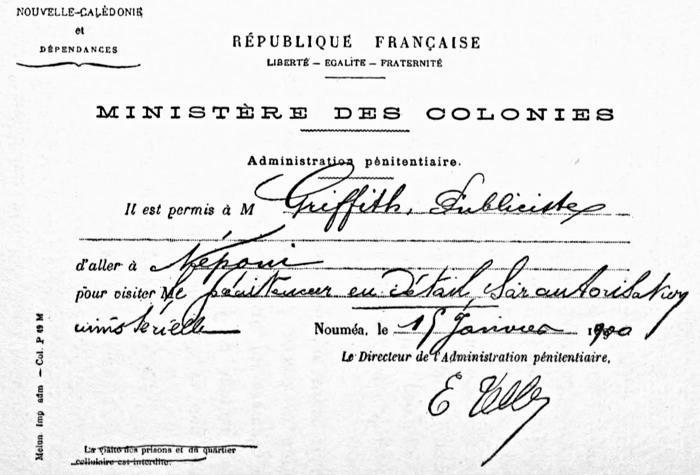 NOUVELLE-CALÉDONIE
et
DÉPENDANCES
RÉPUBLIQUE FRANÇAISE
LIBERTÉ — EGALITE — FRATERNITÉ
MINISTÈRE DES COLONIES
Administration pénitentiaire.
Il est permis à M Griffith, Publiciste
d'aller à Népoui
pour visiter le pénitencier en Détail, Par autorisation
ministérielle Nouméa, le 15 Janvier 1900
Le Directeur de l'Administration pénitentiaire,
E Telle
La visite des prisons et du quartier
cellulaire est interdite.
Melun Imp adm — Col. P 49 M